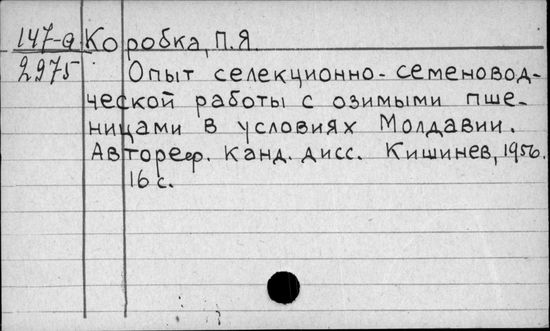 147-а Коробка, П.Я.
2975 Опыт селекционно-семеновод-
ческой работы с озимыми пше-
ницами в условиях Молдавии.
Автореф. канд. дисс. Кишинев, 1956.
16 с.